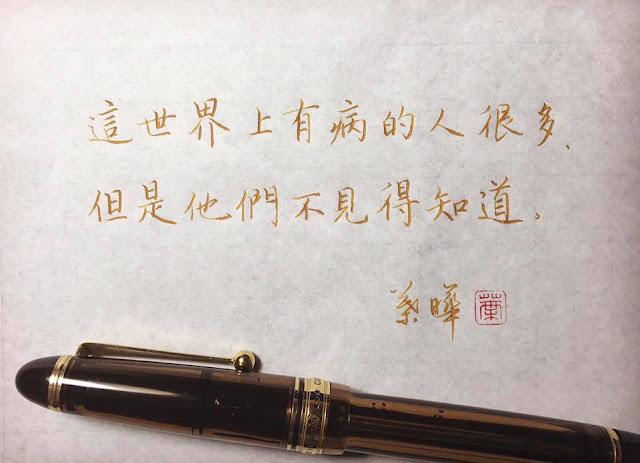 這世界上有病的人很多、
但是他們不見得知道。
葉曄
葉